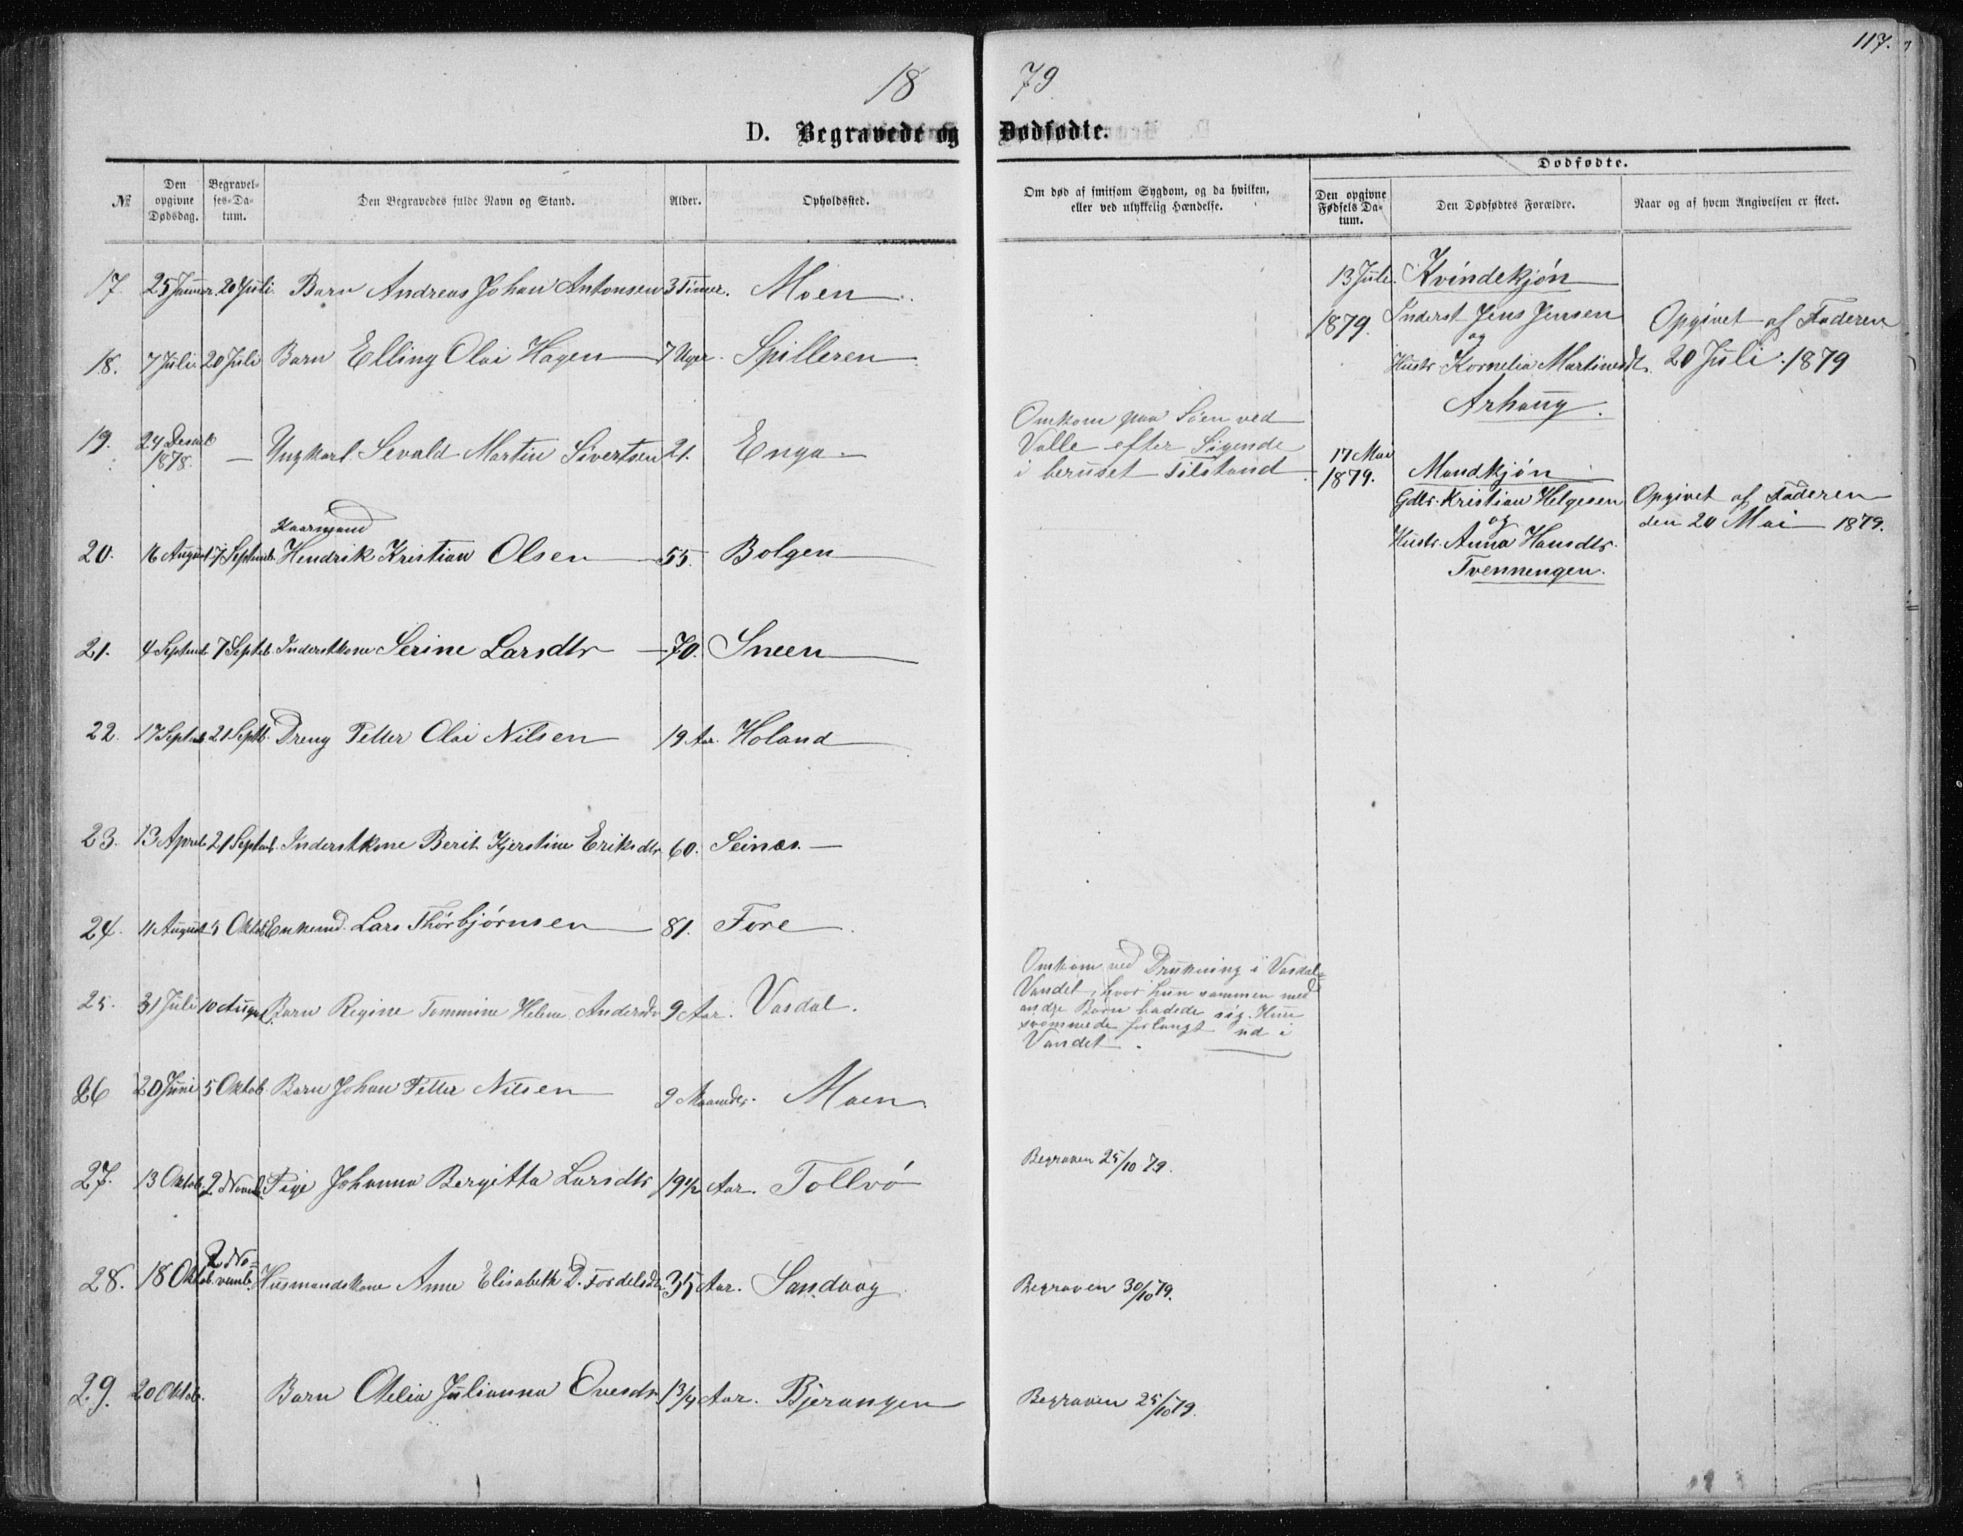 117.
1879
D. Begravede og Dødfødte.
№
Den opgivne Dødsdag.
Begravelses-Datum.
Den Begravedes fulde Navn og Stand.
Alder.
Opholdssted.
Om død af smitsom Sygdom, og da hvilken, eller ved ulykkelig Hændelse.
Dødfødte.
Den opgivne Fødsels Datum.
Den Dødfødtes Forældre.
Naar og af hvem Angivelsen er skeet.
17. 25 20 Juli Barn Andreas Johan Antonsen 3 Timer. Moen
18. 7 Juli 20 Juli Barn Elling Olai Hagen 7 Uger. Spilleren
19. 24 Decmb 1878. — Ungkarl Sevald Martin Sivertsen 21. Enga
Omkom paa Søen ved
Valle efter Sigende
i beruset Tilstand
Kaarmand
20. 16 August 7 Septemb. Hendrik Kristian Olsen 55. Bolgen
21. 4 Septemb 7 Septb. Inderstkone Serine Larsdtr 70. Sneen
22. 17 Septemb 21 Septb. Dreng Petter Olai Nilsen 19 Aar. Holand
23. 13 April 21 Septemb. Inderstkone Berit Kjerstine Eriksdtr 60. Seines.
24. 11 August 5 Oktob Enkemd. Lars Thorbjørnsen 81. Fore
25. 31 Juli 10 August. Barn Regine Tommine Helene Andersdr 9 Aar. Vasdal.
Omkom ved Drukning i Vasdal-
Vandet, hvor hun sammen med
andre Børn badede sig. Hun
svømmede forlangt ud i
Vandet.
26 20 Juni 5 Oktob. Barn Johan Petter Nilsen 9 Maaneder. Moen.
27. 13 Oktob. 2 Novemb. Pige Johanna Bergitta Larsdtr 19 1/2 Aar. Tollvö
Begraven 25/10 79.
28. 18 Oktob. 2 Novemb. Husmandskone Anne Elisabeth D. Tordelsdtr 35 Aar. Sandvag
Begraven 30/10 79.
29. 20 Oktob. Barn Otelia Julianna Ovesdr 1 3/4 Aar. Bjerangen
Begraven 25/10 79.
13 Juli 1879.
Kvindekjøn
Inderst Jens Jensen
og
Hustr. Kornelia Martinsdt.
Arhaug.
Opgivet af Faderen
20 Juli 1879
17 Mai 1879.
Mandkjøn
Gdbr. Kristian Helgesen
og
Hustr. Anna Hansdtr.
Tvennengen.
Opgivet af Faderen
den 20 Mai 1879.